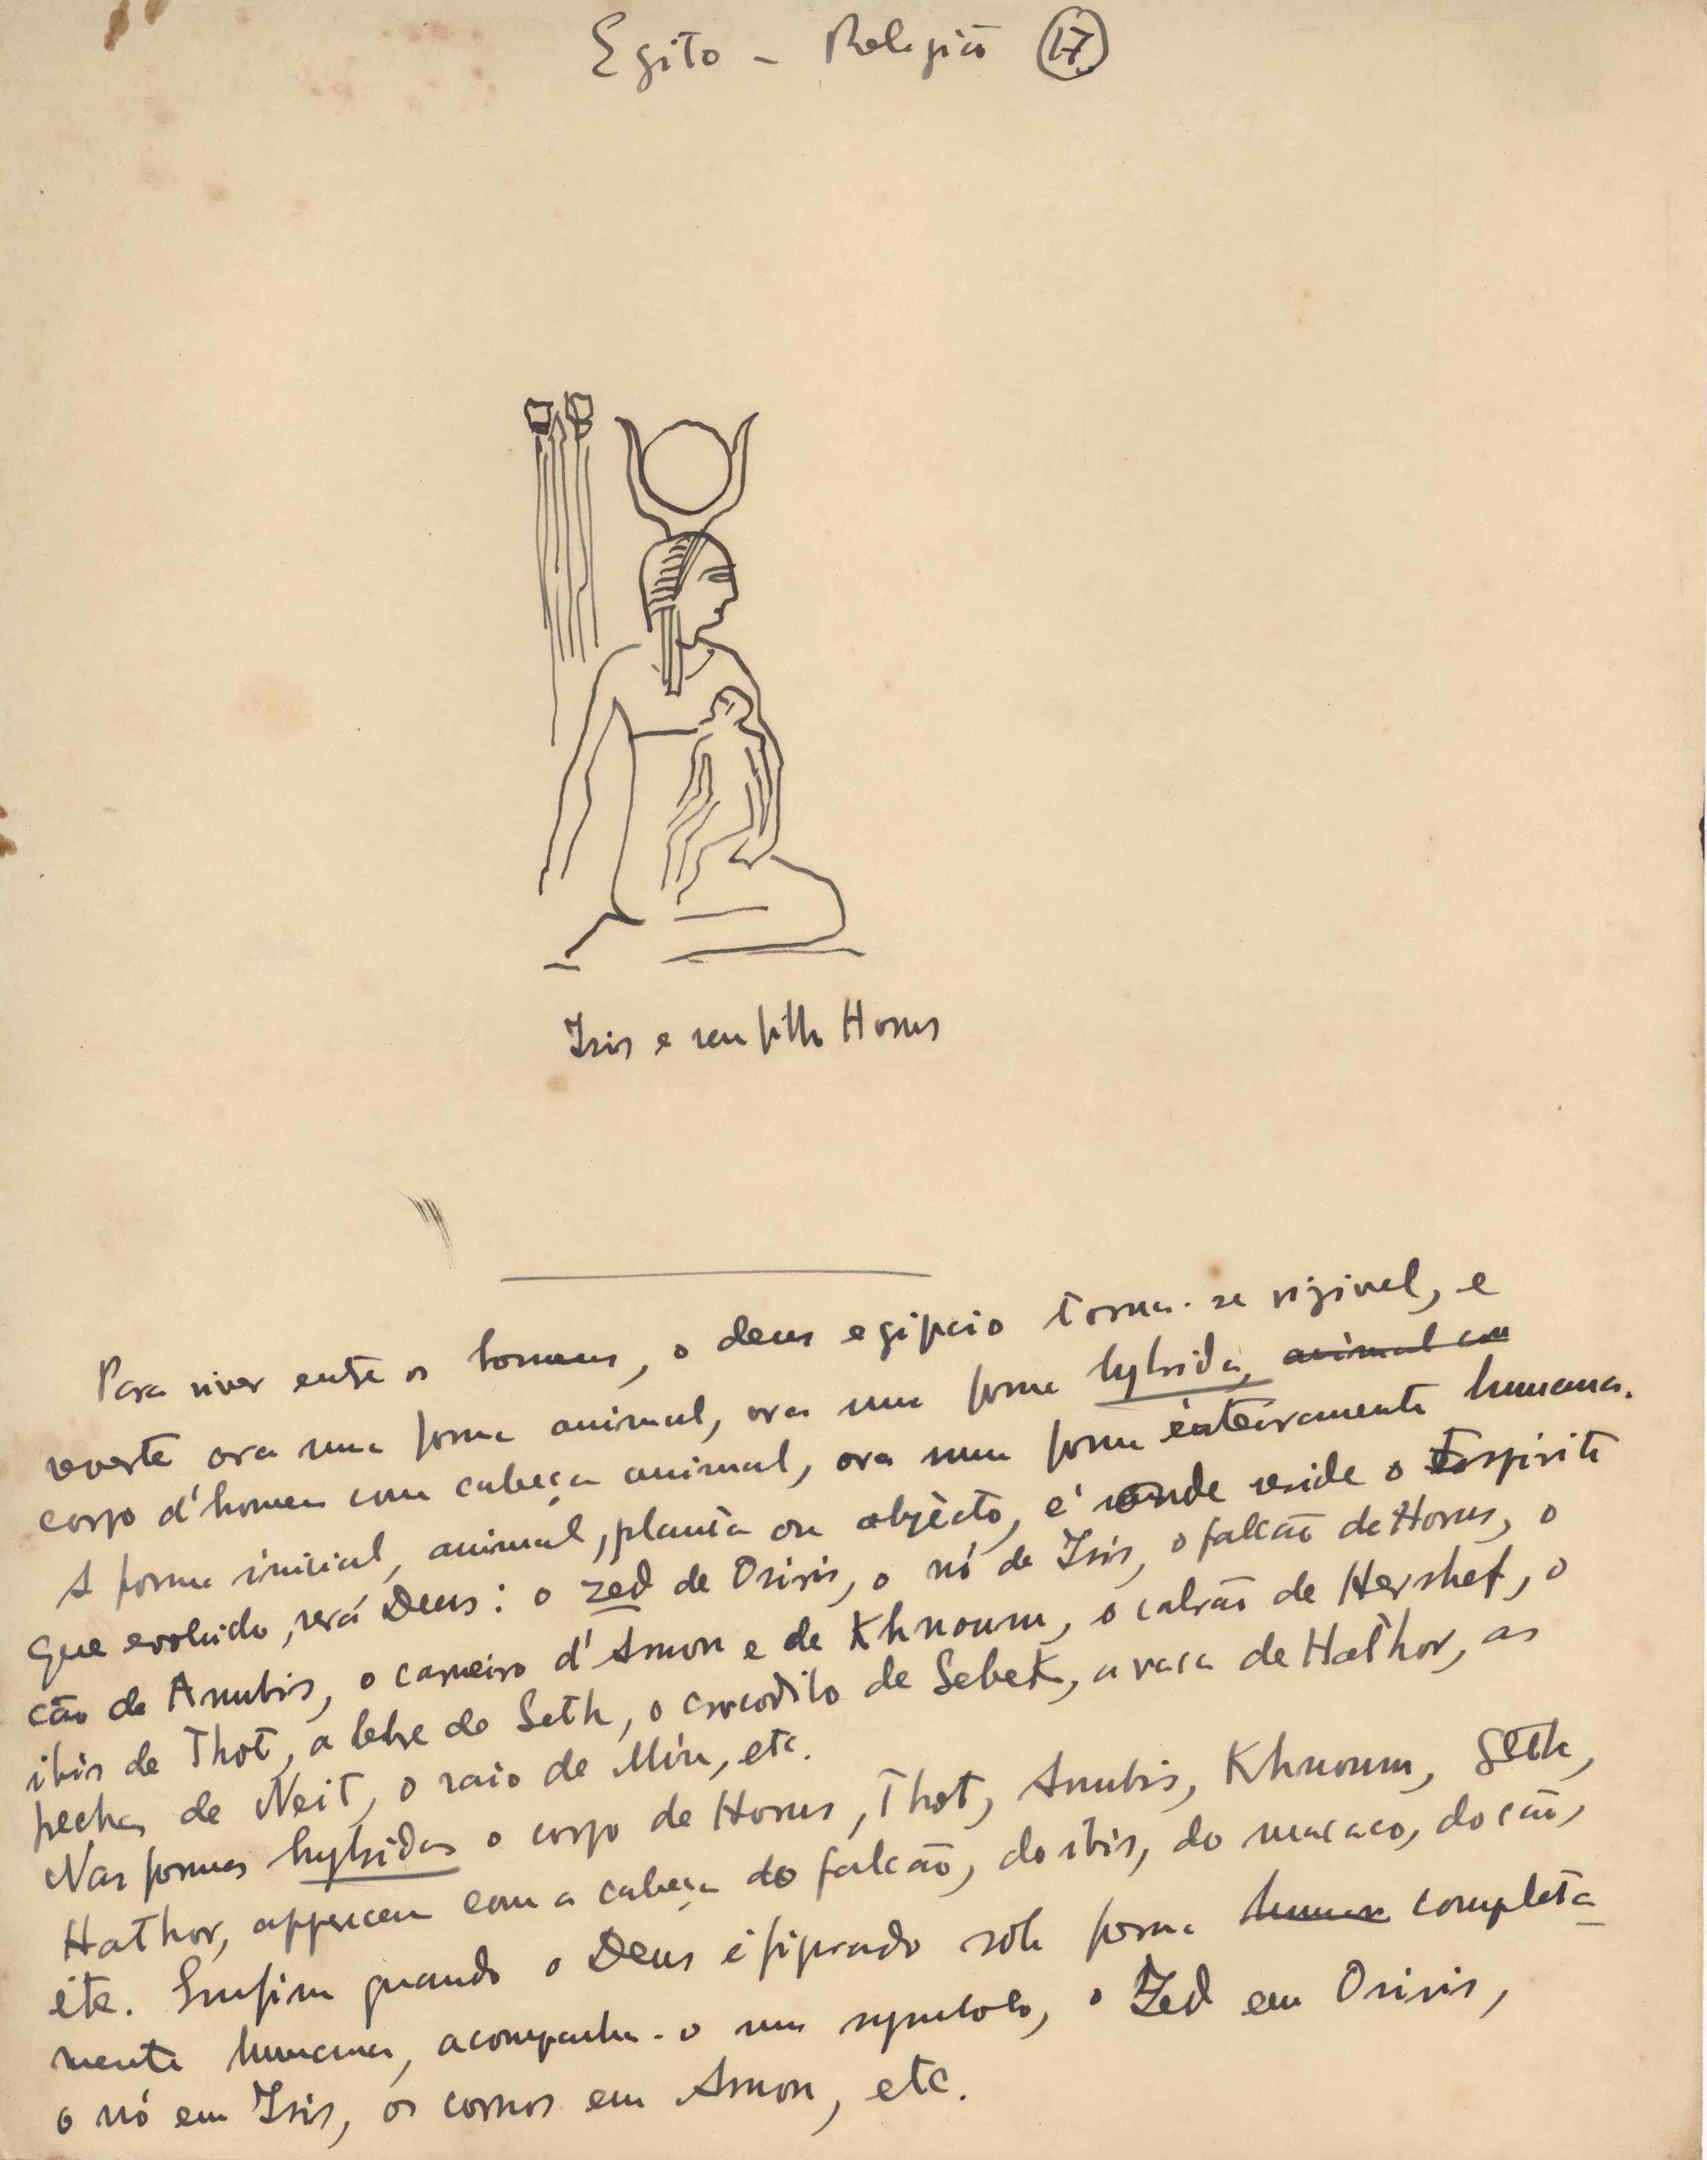 Egito - Religião 17
Isis e seu filho Horus
Para viver entre os homens, o deus egipcio torna-se vizivel, e
reveste ora uma forma animal, ora uma forma hybrida, animal com
corpo d'homem com cabeça animal, ora uma forma inteiramente humana.
A forma inicial, animal, planta ou objècto, é onde reside o Espirito
que evoluido, será Deus: o zed de Osiris, o nó de Isis, o falcão de Horus, o
cão de Anubis, o carneiro d'Amon e de Khnoum, o cabrão de Hershef, o
ibis de Thot, a lebre de Seth, o crocodilo de Sebek, a vaca de Hathor, as
flechas de Neit, o raio de Min, etc.
Nas formas hybridas o corpo de Horus, Thot, Anubis, Khnoum, Seth,
Hathor, apparecem com a cabeça do falcão, do ibis, do macaco, do cão,
etc. Emfim quando o Deus é figurado sob forma human completa
mente humana, acompanha-o um symbolo, o Zed em Osiris,
o nó em Isis, os cornos em Amon, etc.